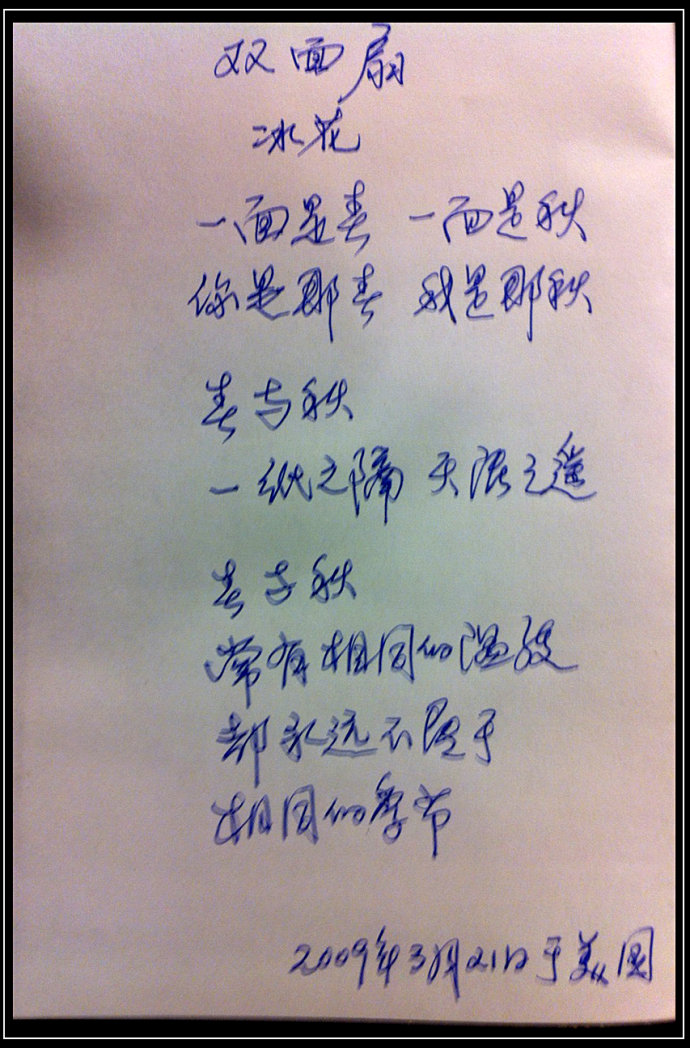 双面扇
冰花
一面是春 一面是秋
你是那春 我是那秋
春与秋
一纸之隔 天涯之遥
春与秋
常有相同的温度
却永远不属于
相同的季节
2009年3月21日于美国